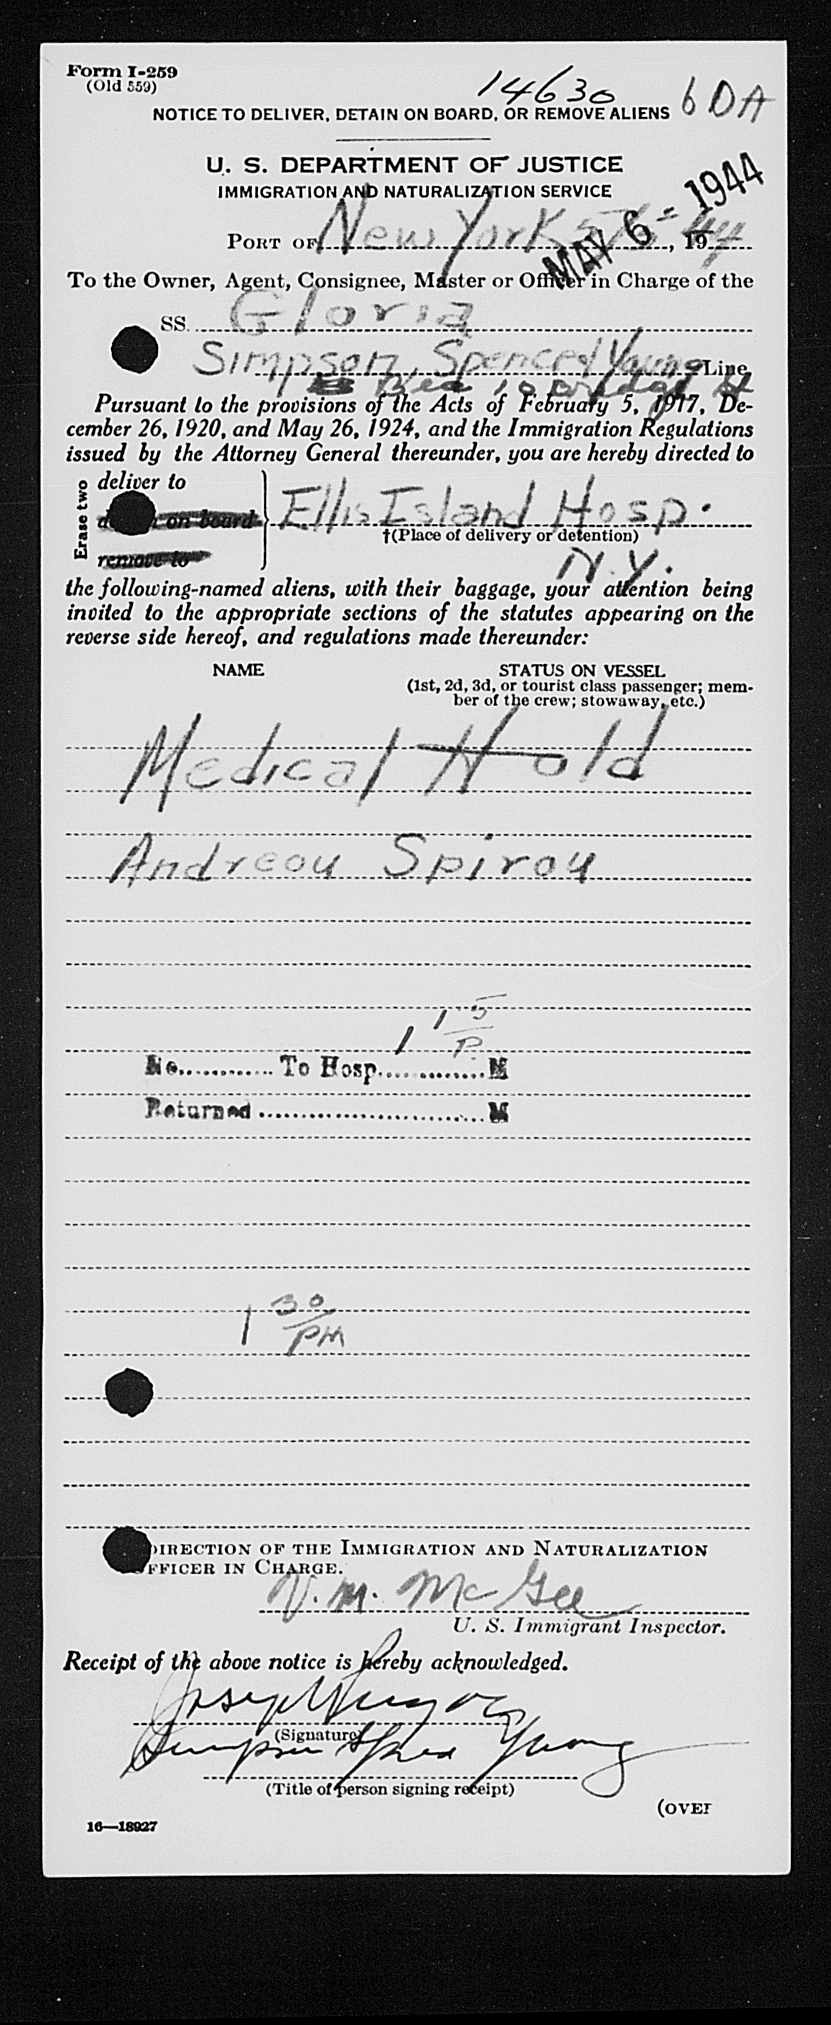 Form I-259
(Old 559)
14630
6 DA
NOTICE TO DELIVER, DETAIN ON BOARD, OR REMOVE ALIENS
U. S. DEPARTMENT OF JUSTICE
IMMIGRATION AND NATURALIZATION SERVICE
MAY 6 - 1944
PORT OF New York 5/6, 1944
To the Owner, Agent, Consignee, Master or Officer in Charge of the
SS. Gloria
Simpson, Spence & Young Line
Pursuant to the provisions of the Acts of February 5, 1917, De-
cember 26, 1920, and May 26, 1924, and the Immigration Regulations
issued by the Attorney General thereunder, you are hereby directed to
Erase two
deliver to
on board
remove to
Ellis Island Hosp.
†(Place of delivery or detention)
N.Y.
the following-named aliens, with their baggage, your attention being
invited to the appropriate sections of the statutes appearing on the
reverse side hereof, and regulations made thereunder:
NAME STATUS ON VESSEL
(1st, 2d, 3d, or tourist class passenger; mem-
ber of the crew; stowaway, etc.)
Medical Hold
Andreou Spirou
1 15 P
No. To Hosp. M
Returned M
1 30 PM
DIRECTION OF THE IMMIGRATION AND NATURALIZATION
OFFICER IN CHARGE.
V. M. McGee
U. S. Immigrant Inspector.
Receipt of the above notice is hereby acknowledged.
Joseph
(Signature)
Simpson Spence Young
(Title of person signing receipt)
(OVER
16—18927